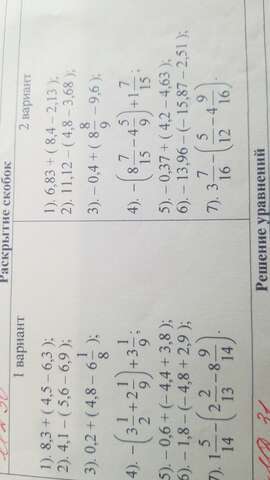 Раскрытие скобок
1 вариант
1). 8,3 + ( 4,5 – 6,3 );
2). 4,1 – ( 5,6 – 6,9 );
3). 0,2 + ( 4,8 – 6 1/8 );
4). – ( 3 1/2 + 2 1/9 ) + 3 1/9 ;
5). – 0,6 + ( –4,4 + 3,8 );
6). – 1,8 – ( –4,8 + 2,9 );
7). 1 5/14 – ( 2 2/13 – 8 9/14 ) .
2 вариант
1). 6,83 + ( 8,4 – 2,13 );
2). 11,12 – ( 4,8 – 3,68 );
3). – 0,4 + ( 8 8/9 – 9,6 );
4). – ( 8 7/15 – 4 5/9 ) + 1 7/15 ;
5). – 0,37 + ( 4,2 – 4,63 );
6). – 13,96 – ( – 15,87 – 2,51 );
7). 3 7/16 – ( 5/12 – 4 9/16 ) .
Решение уравнений